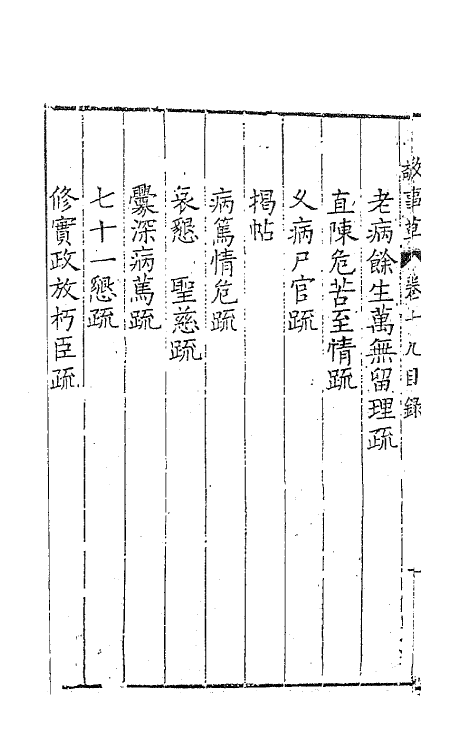 敬事草 卷十九目錄
老病餘生萬無留理疏
直陳危苦至情疏
乆病尸官疏
揭帖
病篤情危疏
哀懇　聖慈疏
釁深病篤疏
七十一懇疏
修實政放朽臣疏